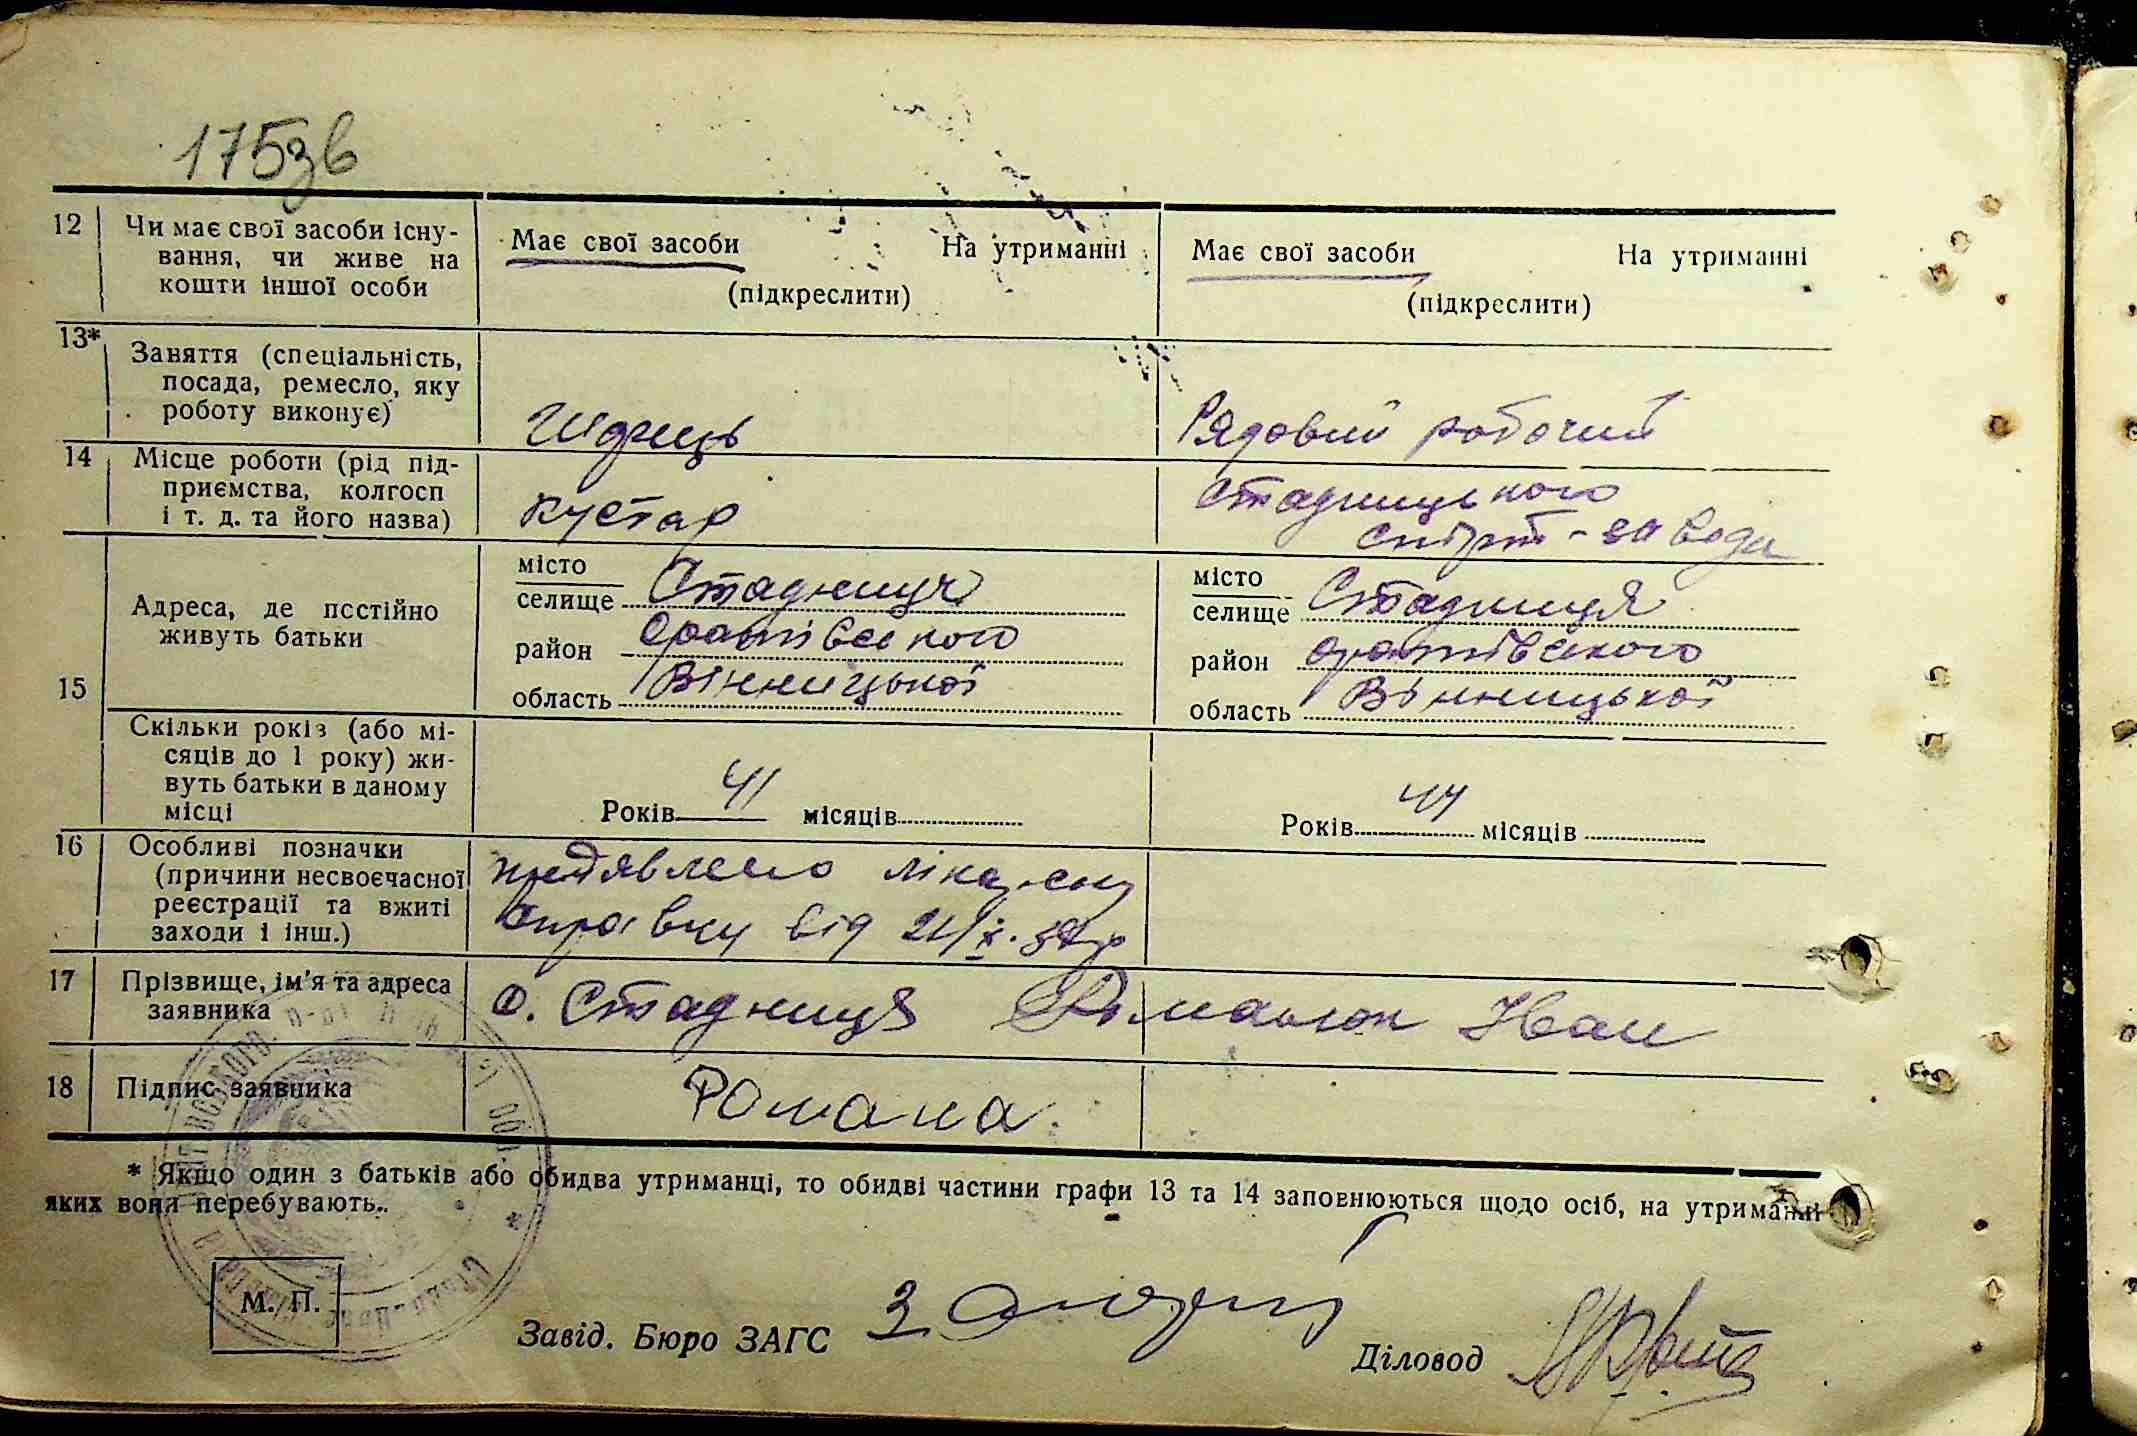 175зв
12 Чи має свої засоби існу-
вання, чи живе на
кошти іншої особи
Має свої засоби На утриманні
(підкреслити)
Має свої засоби На утриманні
(підкреслити)
13* Заняття (спеціальність,
посада, ремесло, яку
роботу виконує)
Рядовий робочий
14 Місце роботи (рід під-
приємства, колгосп
і т. д. та його назва)
кустар
Стадницького
спірт-завода
15 Адреса, де постійно
живуть батьки
місто
селище Стадниця
район Оратівського
область Вінницької
місто
селище Стадниця
район Оратівського
область Вінницької
Скільки років (або мі-
сяців до 1 року) жи-
вуть батьки в даному
місці
Років 41 місяців
Років 44 місяців
16 Особливі позначки
(причини несвоєчасної
реєстрації та вжиті
заходи і інш.)
лікарську
справку від
17 Прізвище, ім'я та адреса
заявника
с. Стадниця Романюк Іван
18 Підпис заявника
Романа
* Якщо один з батьків або обидва утриманці, то обидві частини графи 13 та 14 заповнюються щодо осіб, на утриманні
яких вони перебувають.
М. П.
Завід. Бюро ЗАГС
Діловод